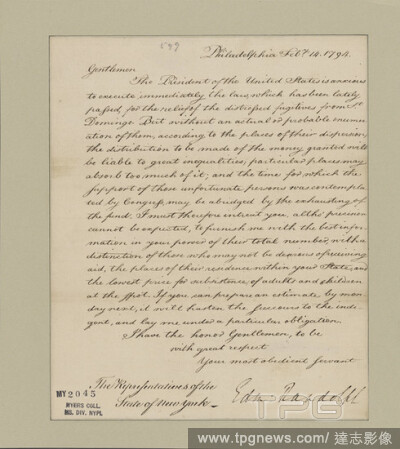 599
Philadelphia Feby. 14. 1794.
Gentlemen
The President of the United States is anxious
to execute immediately the law, which has been lately
passed, for the relief of the distressed fugitives from St.
Domingo. But without an actual or probable enumer-
ation of them, according to the places of their dispersion,
the distribution to be made of the money granted will
be liable to great inequalities; particular places may
absorb too much of it; and the time for which the
support of these unfortunate persons was contempla-
ted by Congress, may be abridged by the exhausting of
the fund. I must therefore entreat you, altho' precision
cannot be expected, to furnish me with the best infor-
mation in your power of their total number, with a
distinction of those who may not be desirous of receiving
aid, the places of their residence within your State, and
the lowest price for subsistence of adults and children
at the spot. If you can prepare an estimate by mon-
day next, it will hasten the succours to the indi-
gent, and lay me under a particular obligation.
I have the honor Gentlemen, to be
with great respect
Your most obedient servant
Edm Randolph
The Representatives of the
State of New York
MY 2045
MYERS COLL.
MS. DIV. NYPL
TPG
www.tpgnews.com | 達志影像